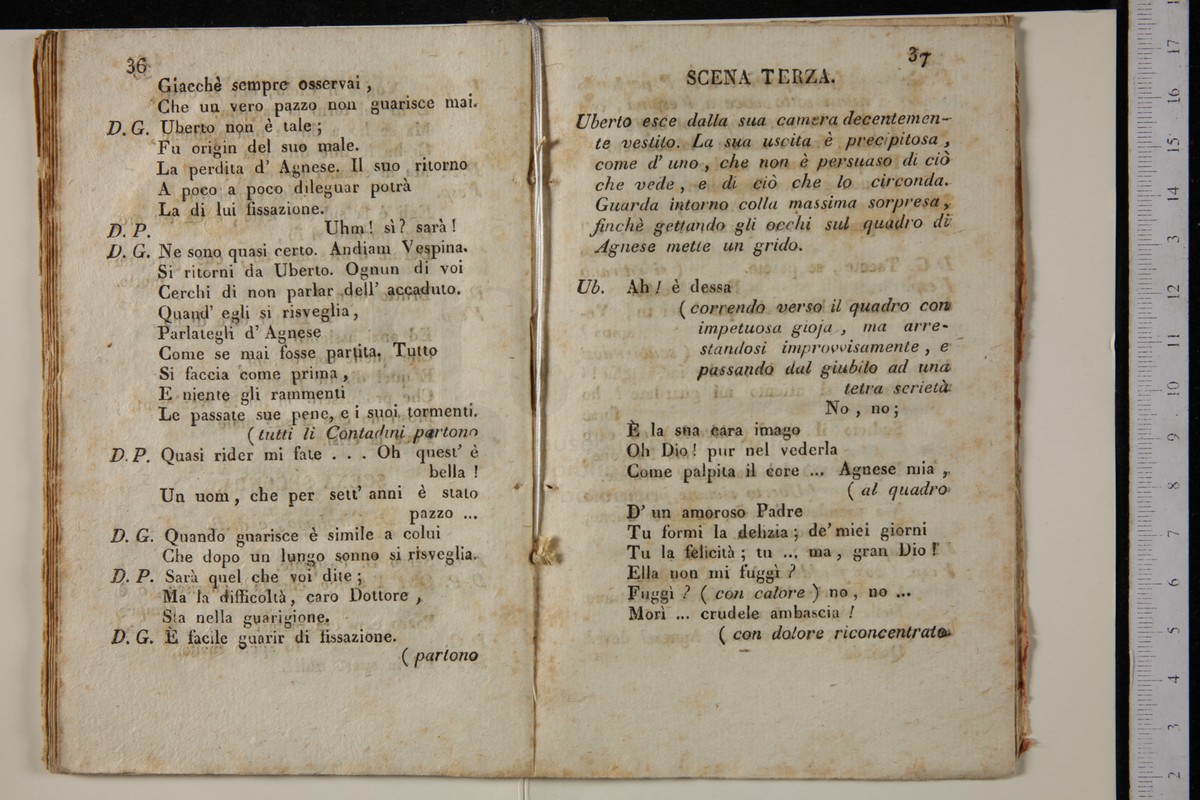 36
Giacchè sempre osservai ,
Che un vero pazzo non guarisce mai.
D. G. Uberto non è tale ;
Fu origin del suo male.
La perdita d' Agnese. Il suo ritorno
A poco a poco dileguar potrà
La di lui fissazione.
D. P. Uhm ! sì ? sarà !
D. G. Ne sono quasi certo. Andiam Vespina.
Si ritorni da Uberto. Ognun di voi
Cerchi di non parlar dell' accaduto.
Quand' egli si risveglia ,
Parlategli d' Agnese
Come se mai fosse partita. Tutto
Si faccia come prima ,
E niente gli rammenti
Le passate sue pene, e i suoi tormenti.
( tutti li Contadini partono
D. P. Quasi rider mi fate . . . Oh quest' è
bella !
Un uom , che per sett' anni è stato
pazzo ...
D. G. Quando guarisce è simile a colui
Che dopo un lungo sonno si risveglia.
D. P. Sarà quel che voi dite ;
Ma la difficoltà , caro Dottore ,
Sta nella guarigione.
D. G. È facile guarir di fissazione.
( partono
37
SCENA TERZA.
Uberto esce dalla sua camera decentemen-
te vestito. La sua uscita è precipitosa ,
come d' uno , che non è persuaso di ciò
che vede , e di ciò che lo circonda.
Guarda intorno colla massima sorpresa ,
finchè gettando gli occhi sul quadro di
Agnese mette un grido.
Ub. Ah ! è dessa
( correndo verso il quadro con
impetuosa gioja , ma arre-
standosi improvvisamente , e
passando dal giubilo ad una
tetra serietà
No , no ;
È la sua cara imago
Oh Dio ! pur nel vederla
Come palpita il core ... Agnese mia ,
( al quadro
D' un amoroso Padre
Tu formi la delizia ; de' miei giorni
Tu la felicità ; tu ... ma , gran Dio !
Ella non mi fuggì ?
Fuggì ? ( con calore ) no , no ...
Morì ... crudele ambascia !
( con dolore riconcentrato
17
16
15
14
13
12
11
10
9
8
7
6
5
4
3
2